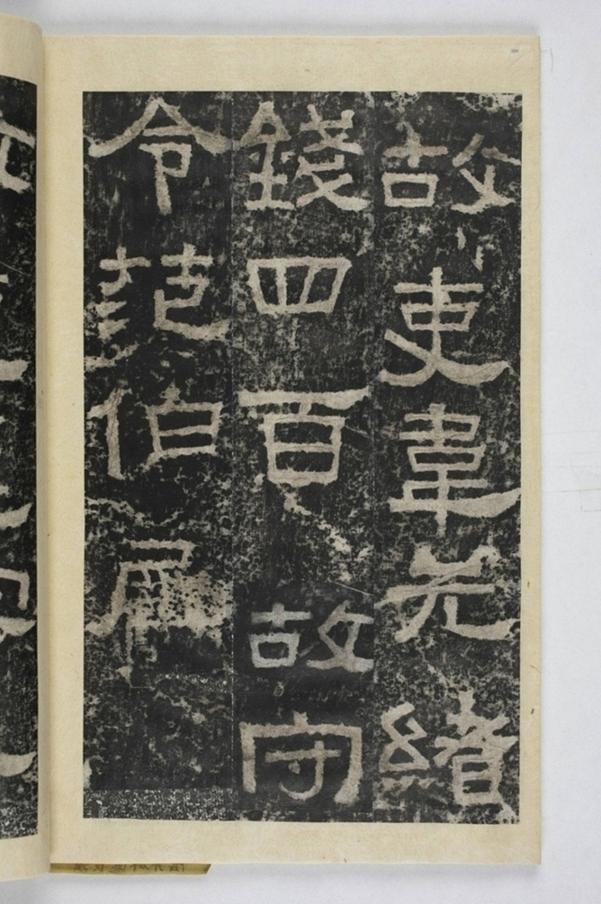 故吏韋先緒
錢四百 故守
令范伯犀